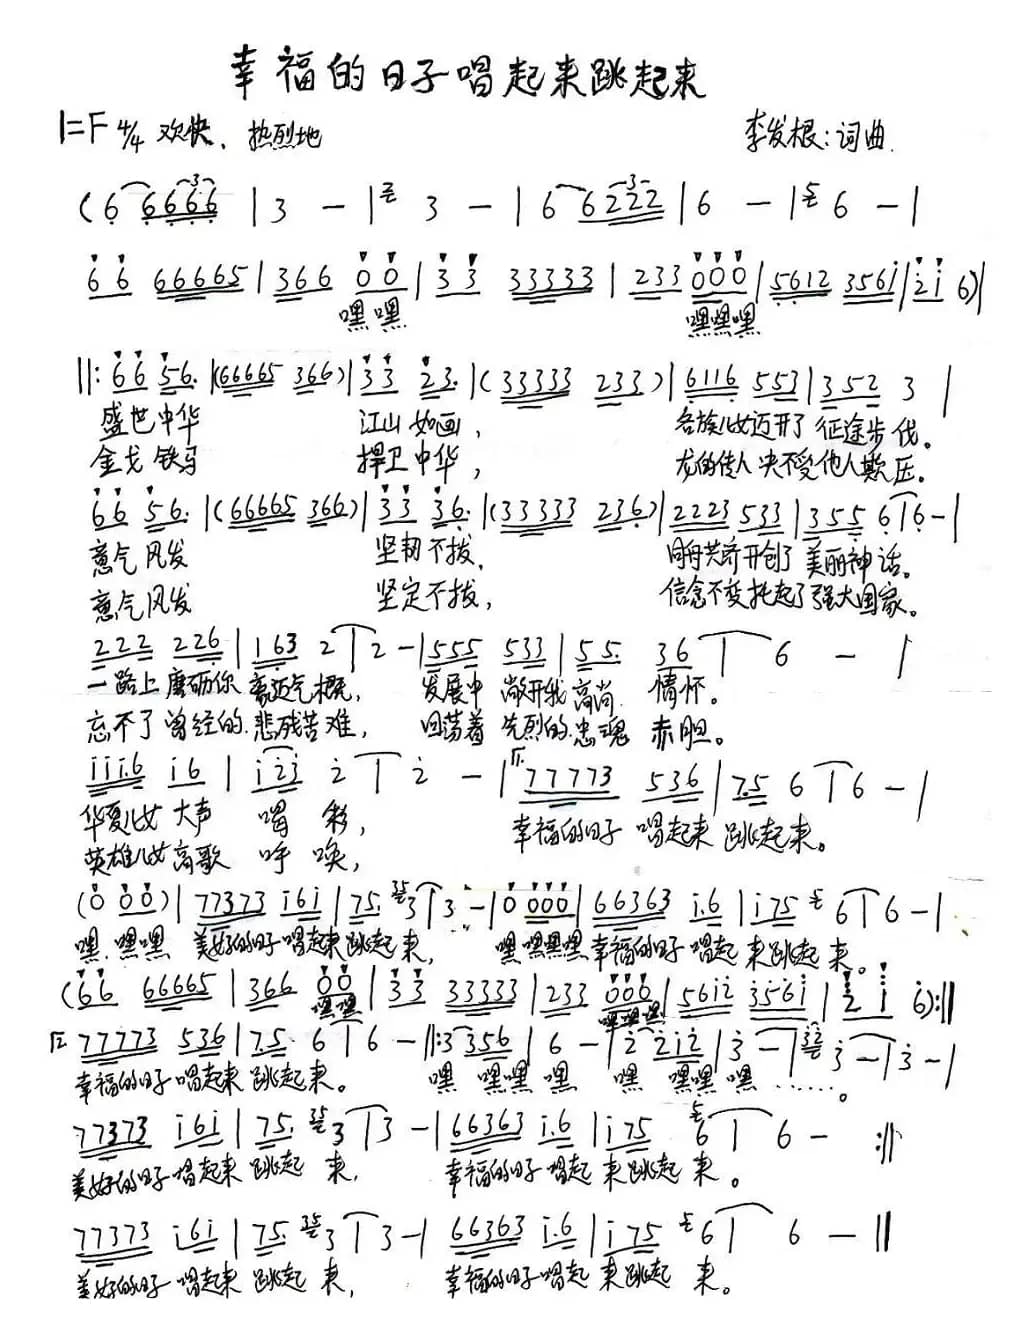 幸福的日子唱起来跳起来
1=F 4/4 欢快、热烈地 李发根:词曲.
(6 6666 3 | 3 - | 3 - | 6 6222 3 | 6 - | 6 - |
66 66665 | 366 00 | 33 33333 | 233 000 | 5612 3561 | 21 6) |
嘿嘿 嘿嘿嘿
||: 66 56. | (66665 366) | 33 23. | (33333 233) | 6116 553 | 352 3 |
盛世中华 江山如画, 各族儿女迈开了征途步伐。
金戈铁马 捍卫中华, 龙的传人决不受他人欺压。
66 56. | (66665 366) | 33 36. | (33333 236) | 2223 533 | 355 6 | 6 - |
意气风发 坚韧不拔, 同舟共济开创了美丽神话。
意气风发 坚定不拔, 信念不变托起了强大国家。
222 226 | 163 2 | 2 - | 555 533 | 55 36 | 6 - |
一路上磨砺你豪迈气概, 发展中敞开我高尚情怀。
忘不了曾经的悲残苦难, 回荡着先烈的忠魂赤胆。
111.6 16 | 123 2 | 2 - | 77773 536 | 7.5 6 | 6 - |
华夏儿女大声喝彩, 幸福的日子唱起来跳起来。
英雄儿女高歌呼唤,
(0 00) | 77373 161 | 75. 35 3 | 3 - | 0 000 | 66363 1.6 | 175 5 6 | 6 - |
嘿.嘿嘿 美好的日子唱起来跳起来, 嘿嘿嘿嘿幸福的日子唱起来跳起来。
(66 66665 | 366 00 | 33 33333 | 233 000 | 5612 3561 | 2 1 6) :||
嘿嘿 嘿嘿嘿
77773 536 | 7.5 6 | 6 - ||: 3 356 | 6 - | 2 212 | 3 - | 32 3 - | 3 - |
幸福的日子唱起来跳起来。 嘿嘿嘿嘿 嘿嘿嘿嘿 ......。
77373 161 | 75. 35 3 | 3 - | 66363 1.6 | 175 5 6 | 6 - :||
美好的日子唱起来跳起来, 幸福的日子唱起来跳起来。
77373 161 | 75. 35 3 | 3 - | 66363 1.6 | 175 5 6 | 6 - ||
美好的日子唱起来跳起来, 幸福的日子唱起来跳起来。